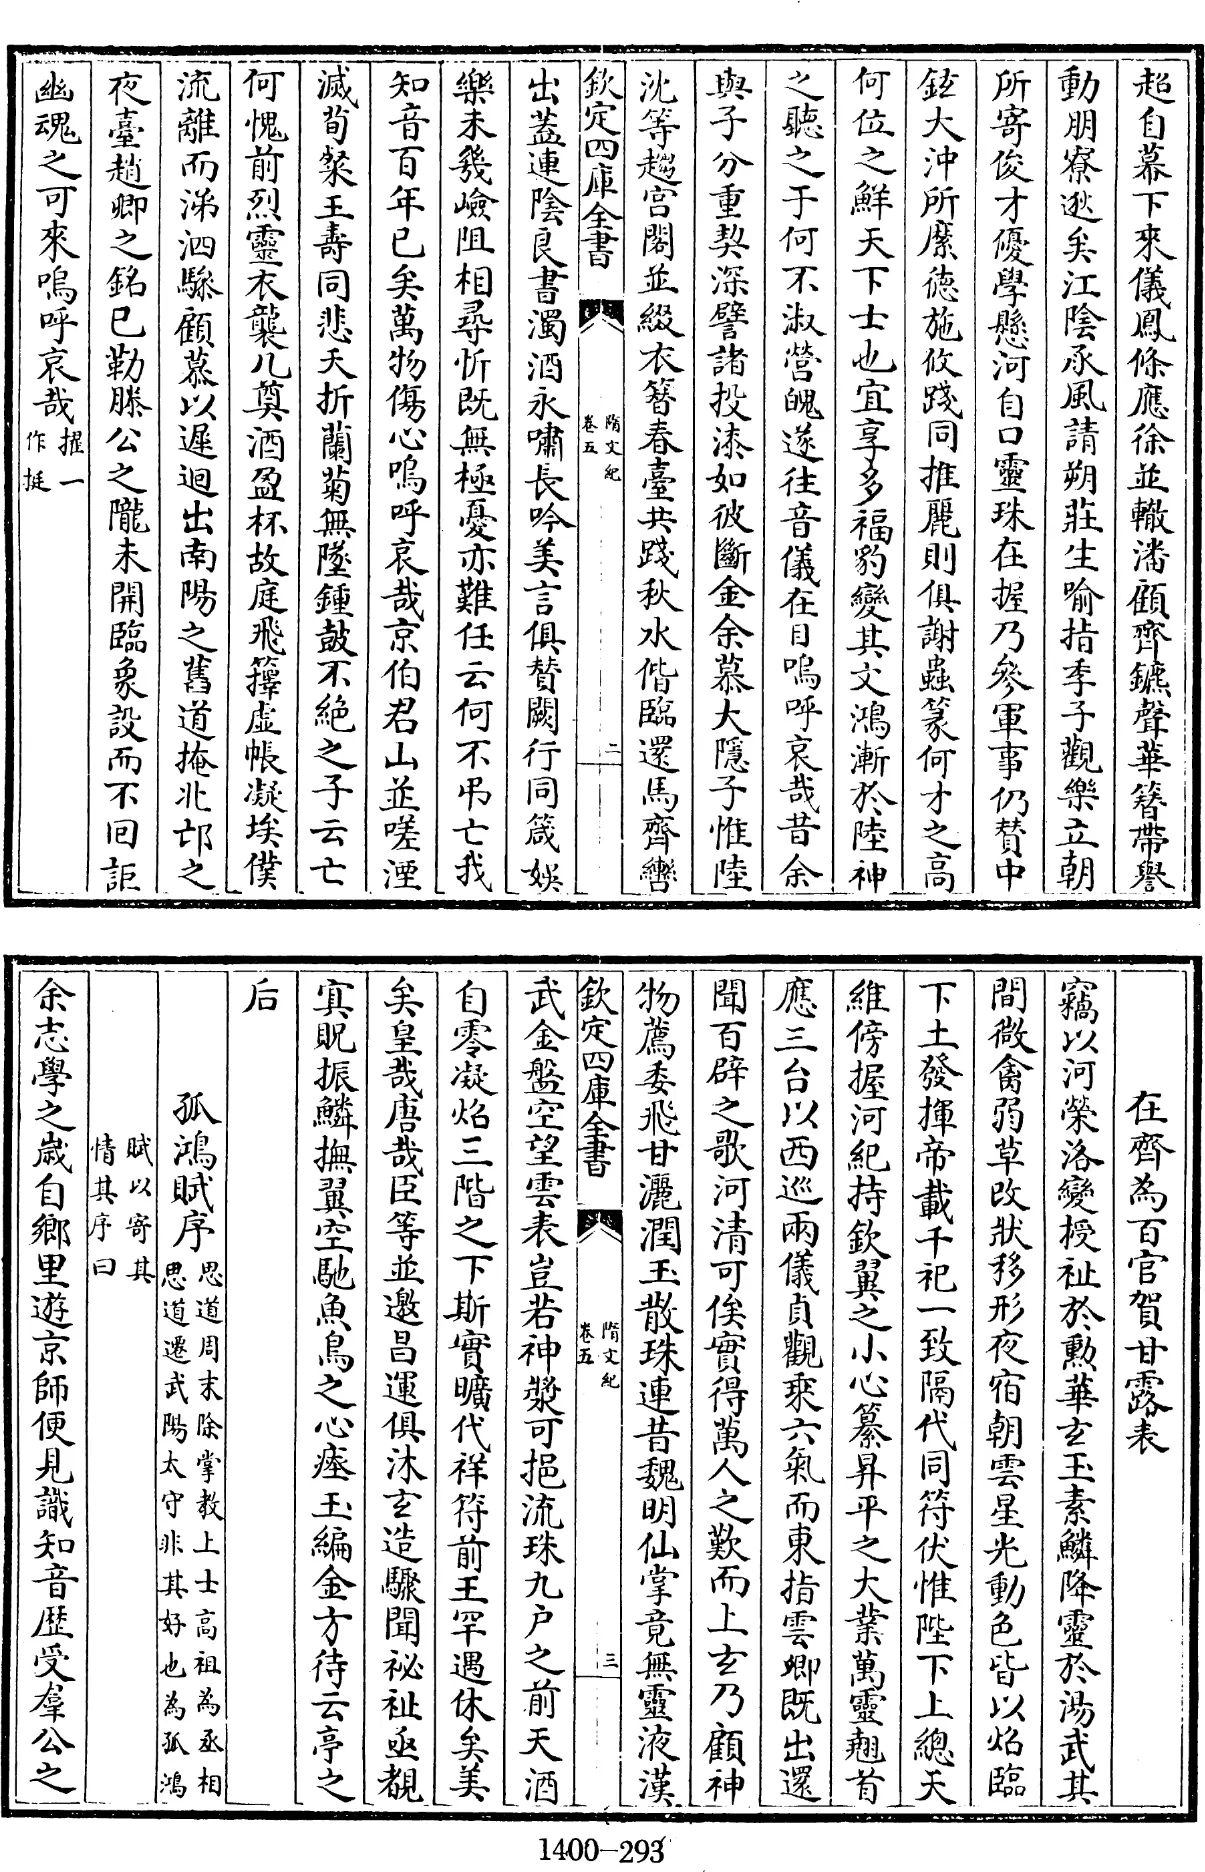 超自幕下來儀鳳條應徐並轍潘顧齊鑣聲華簪帶譽
動朋寮逖矣江陰承風請朔莊生喻指季子觀樂立朝
所寄俊才優學懸河自口靈珠在握乃參軍事仍贊中
鉉大沖所縻德施攸踐同推麗則俱謝蟲篆何才之高
何位之鮮天下士也宜享多福豹變其文鴻漸於陸神
之聽之于何不淑營魄遂往音儀在目嗚呼哀哉昔余
與子分重契深譬諸投漆如彼斷金余慕大隱子惟陸
沈等趨宮閣並綴衣簪春臺共踐秋水偕臨還馬齊轡
欽定四庫全書
隋文紀
卷五
二
出蓋連陰良書濁酒永嘯長吟美言俱贊闕行同箴娛
樂未幾嶮阻相尋忻既無極憂亦難任云何不弔亡我
知音百年已矣萬物傷心嗚呼哀哉京伯君山並嗟湮
滅荀粲王壽同悲夭折蘭菊無墜鍾鼓不絶之子云亡
何愧前烈靈衣襲几奠酒盈杯故庭飛籜虛帳凝埃僕
流離而涕泗驂顧慕以遲迴出南陽之舊道掩北邙之
夜臺趙卿之銘已勒滕公之隴未開臨象設而不囘詎
幽魂之可來嗚呼哀哉
握一
作挺
在齊為百官賀甘露表
竊以河榮洛變授祉於勲華玄玉素鱗降靈於湯武其
間微禽弱草改狀移形夜宿朝雲星光動色皆以焰臨
下土發揮帝載千祀一致隔代同符伏惟陛下上總天
維傍握河紀持欽翼之小心纂昇平之大業萬靈翹首
應三台以西巡兩儀貞觀乘六氣而東指雲卿既出還
聞百辟之歌河清可俟實得萬人之歎而上玄乃顧神
物薦委飛甘灑潤玉散珠連昔魏明仙掌竟無靈液漢
欽定四庫全書
隋文紀
卷五
三
武金盤空望雲表豈若神漿可挹流珠九户之前天酒
自零凝焰三階之下斯實曠代祥符前王罕遇休矣美
矣皇哉唐哉臣等並邀昌運俱沐玄造驟聞祕祉亟覩
寘貺振鱗撫翼空馳魚鳥之心瘞玉編金方待云亭之
后
孤鴻賦序
思道周末除掌教上士高祖為丞相
思道遷武陽太守非其好也為孤鴻
賦以寄其
情其序曰
余志學之歲自鄉里遊京師便見識知音歴受羣公之
1400-293